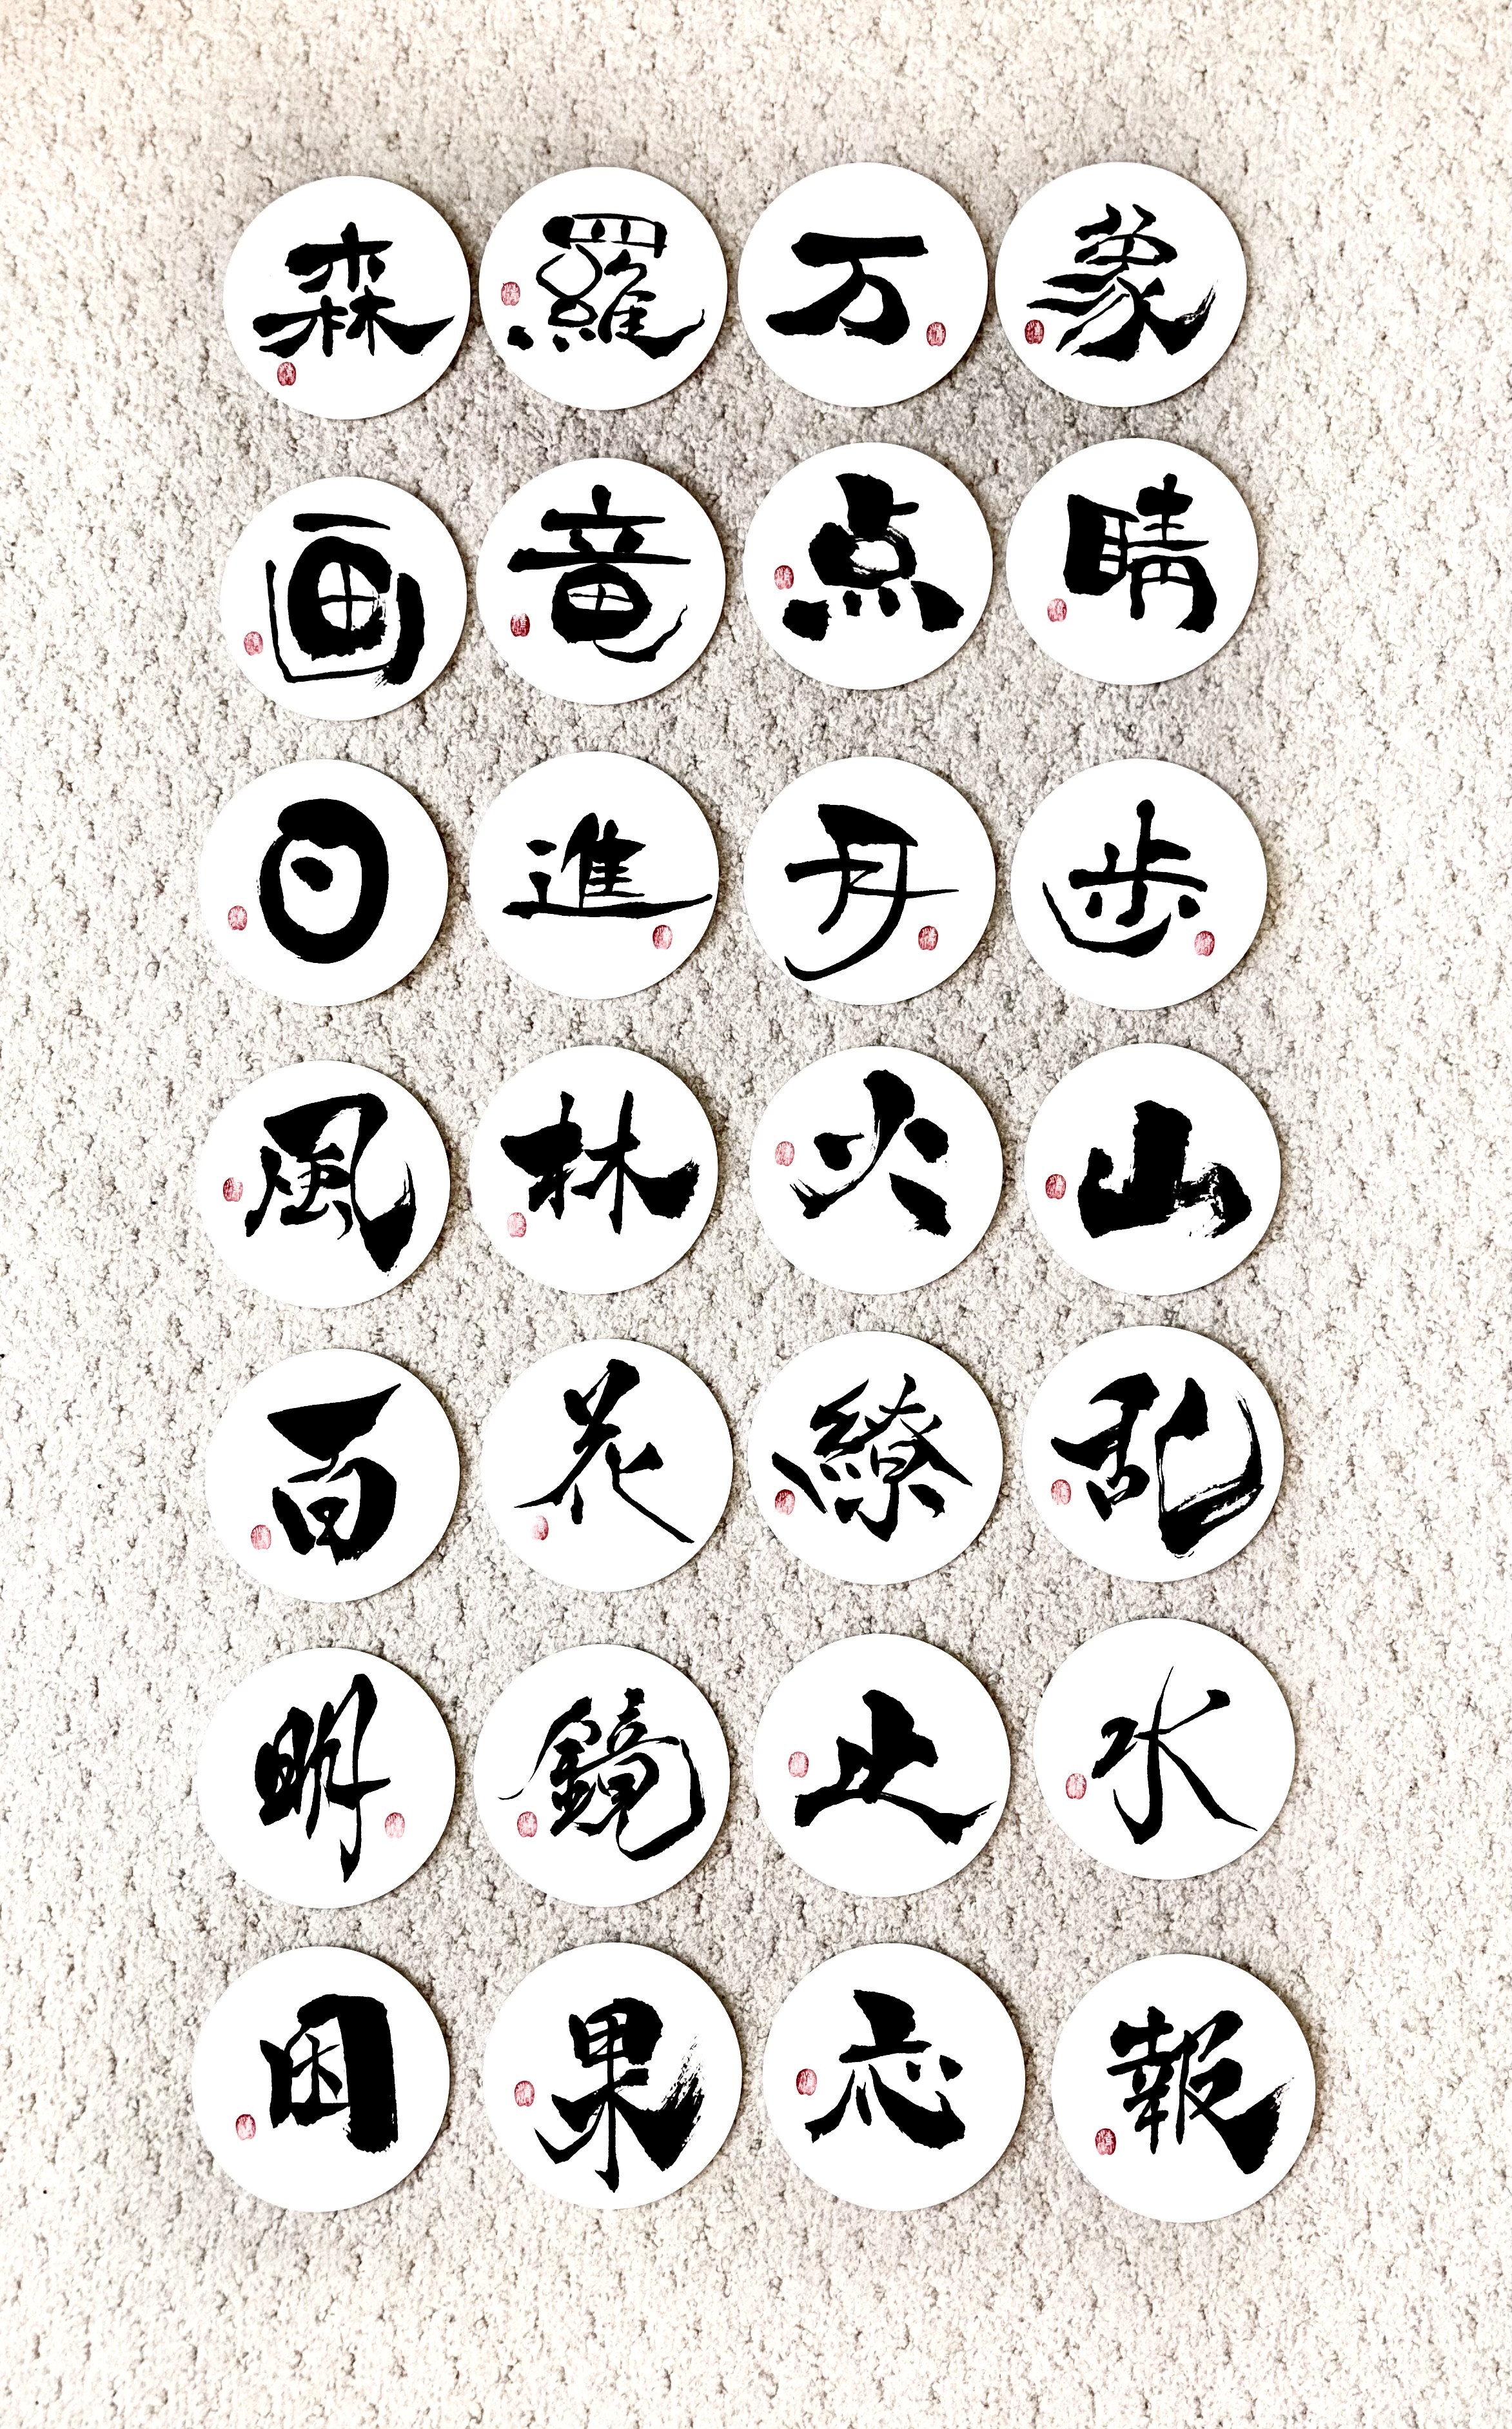 森羅万象
画竜点睛
日進月歩
風林火山
百花繚乱
明鏡止水
因果応報